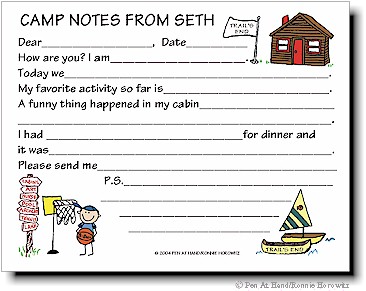 CAMP NOTES FROM SETH
TRAIL'S
END
Dear____________________, Date__________
How are you? I am____________________.
Today we____________________.
My favorite activity so far is____________________.
A funny thing happened in my cabin____________________
____________________.
I had____________________for dinner and
it was____________________.
Please send me____________________
P.S.____________________
TRAIL'S END
© 2004 PEN AT HAND/RONNIE HOROWITZ
© Pen At Hand/Ronnie Horowitz